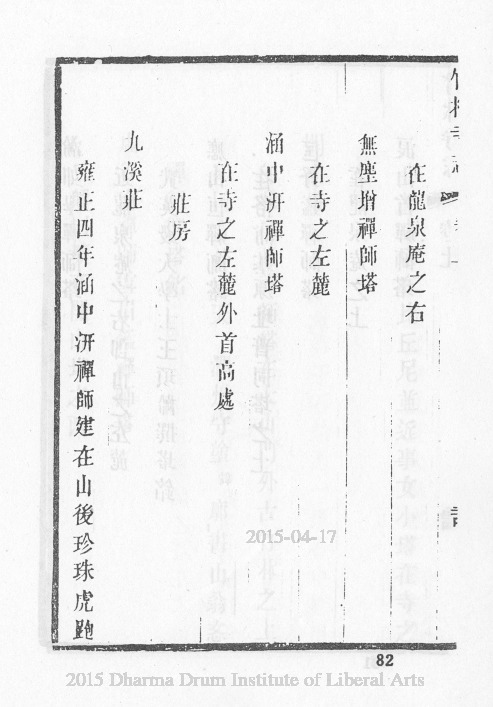 在龍泉庵之右
無塵增禪師塔
在寺之左麓
涵中汧禪師塔
在寺之左麓外首高處
莊房
九溪莊
雍正四年涵中汧禪師建在山後珍珠虎跑
2015-04-17
82
2015 Dharma Drum Institute of Liberal Arts